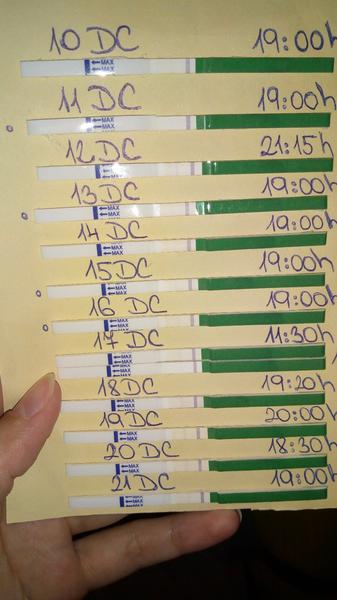 10 DC 19:00h
←MAX
←MAX
11 DC 19:00h
←MAX
←MAX
12 DC 21:15h
←MAX
←MAX
13 DC 19:00h
←MAX
←MAX
14 DC 19:00h
←MAX
←MAX
15 DC 19:00h
←MAX
←MAX
16 DC 19:00h
MAX
←MAX
MAX
17 DC 11:30h
←MAX
←MAX
←MAX
←MAX
18 DC 19:20h
MAX
←MAX
MAX
19 DC 20:00h
←MAX
←MAX
20 DC 18:30h
←MAX
←MAX
21 DC 19:00h
←MAX
←MAX